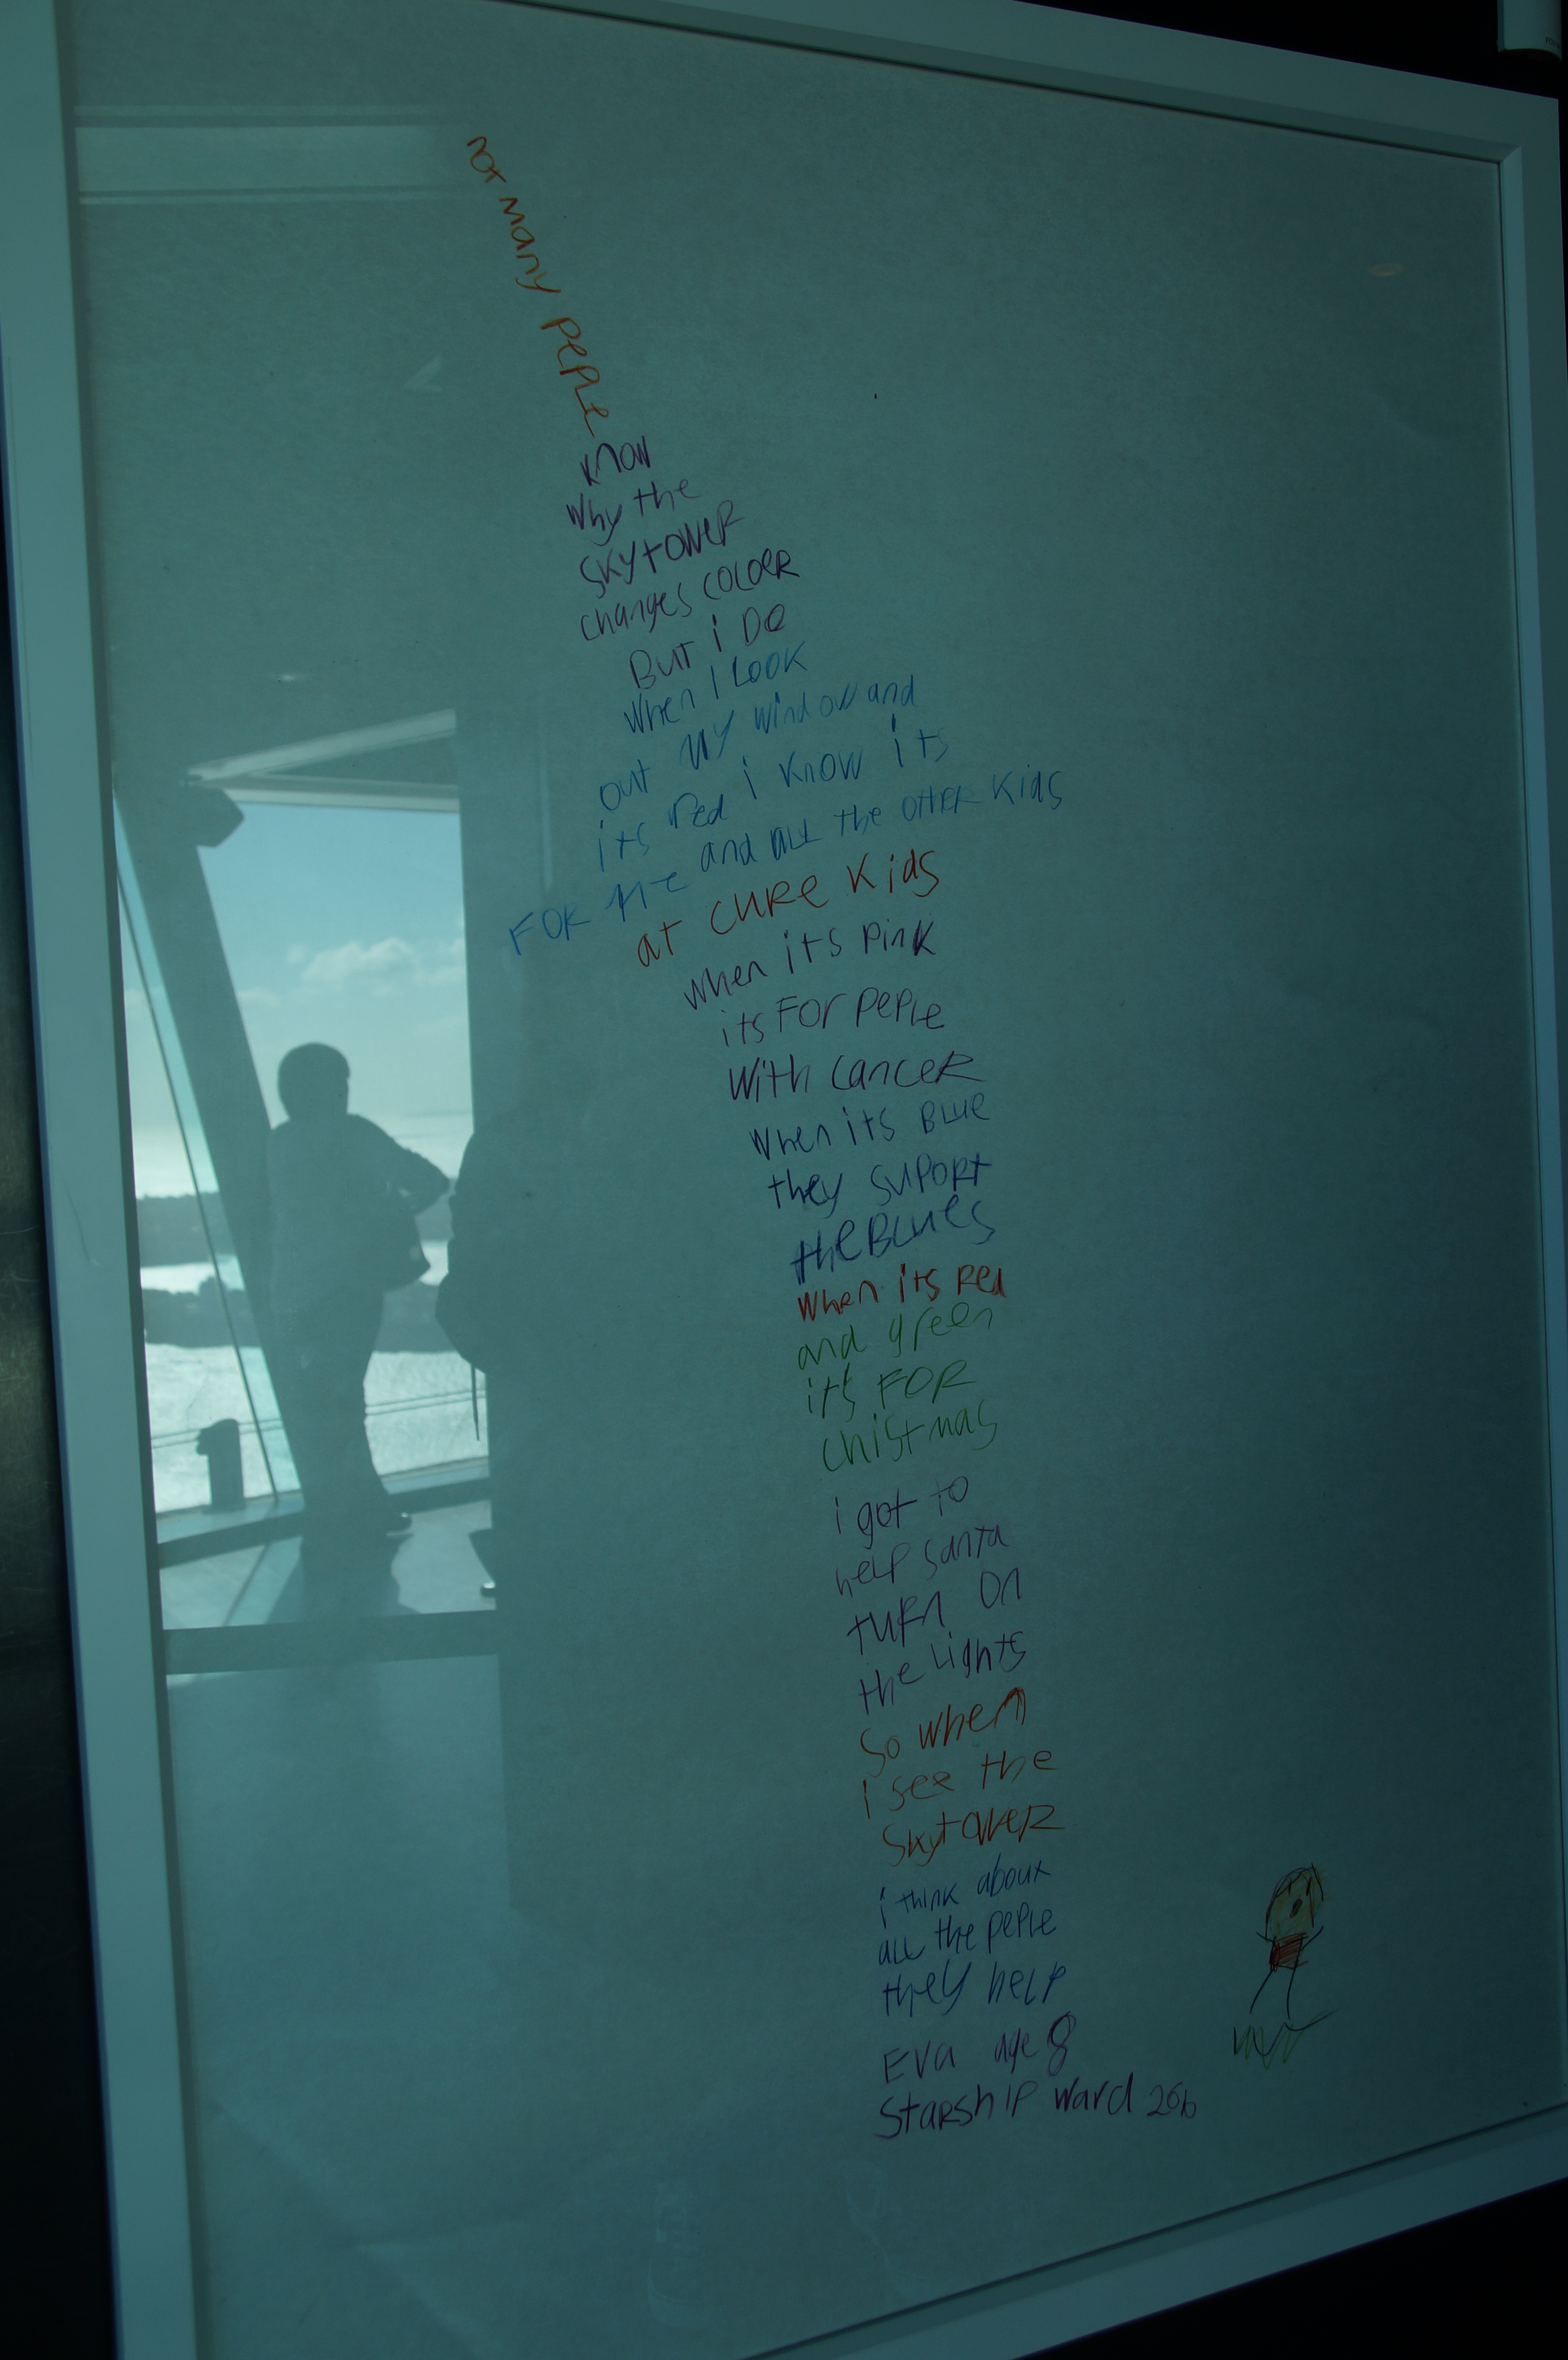 not many peple
know
why the
skytower
changes coloer
But i Do
when I Look
out my window and
its red i know its
FOR me and all the other kids
at cure kids
when its pink
its For peple
with cancer
when its Blue
they suport
the Blues
when its red
and green
it's FOR
chistmas
i got to
help santa
turn on
the Lights
So when
i see the
Skytower
i think about
all the peple
they help
Eva age 8
Starship Ward 26b